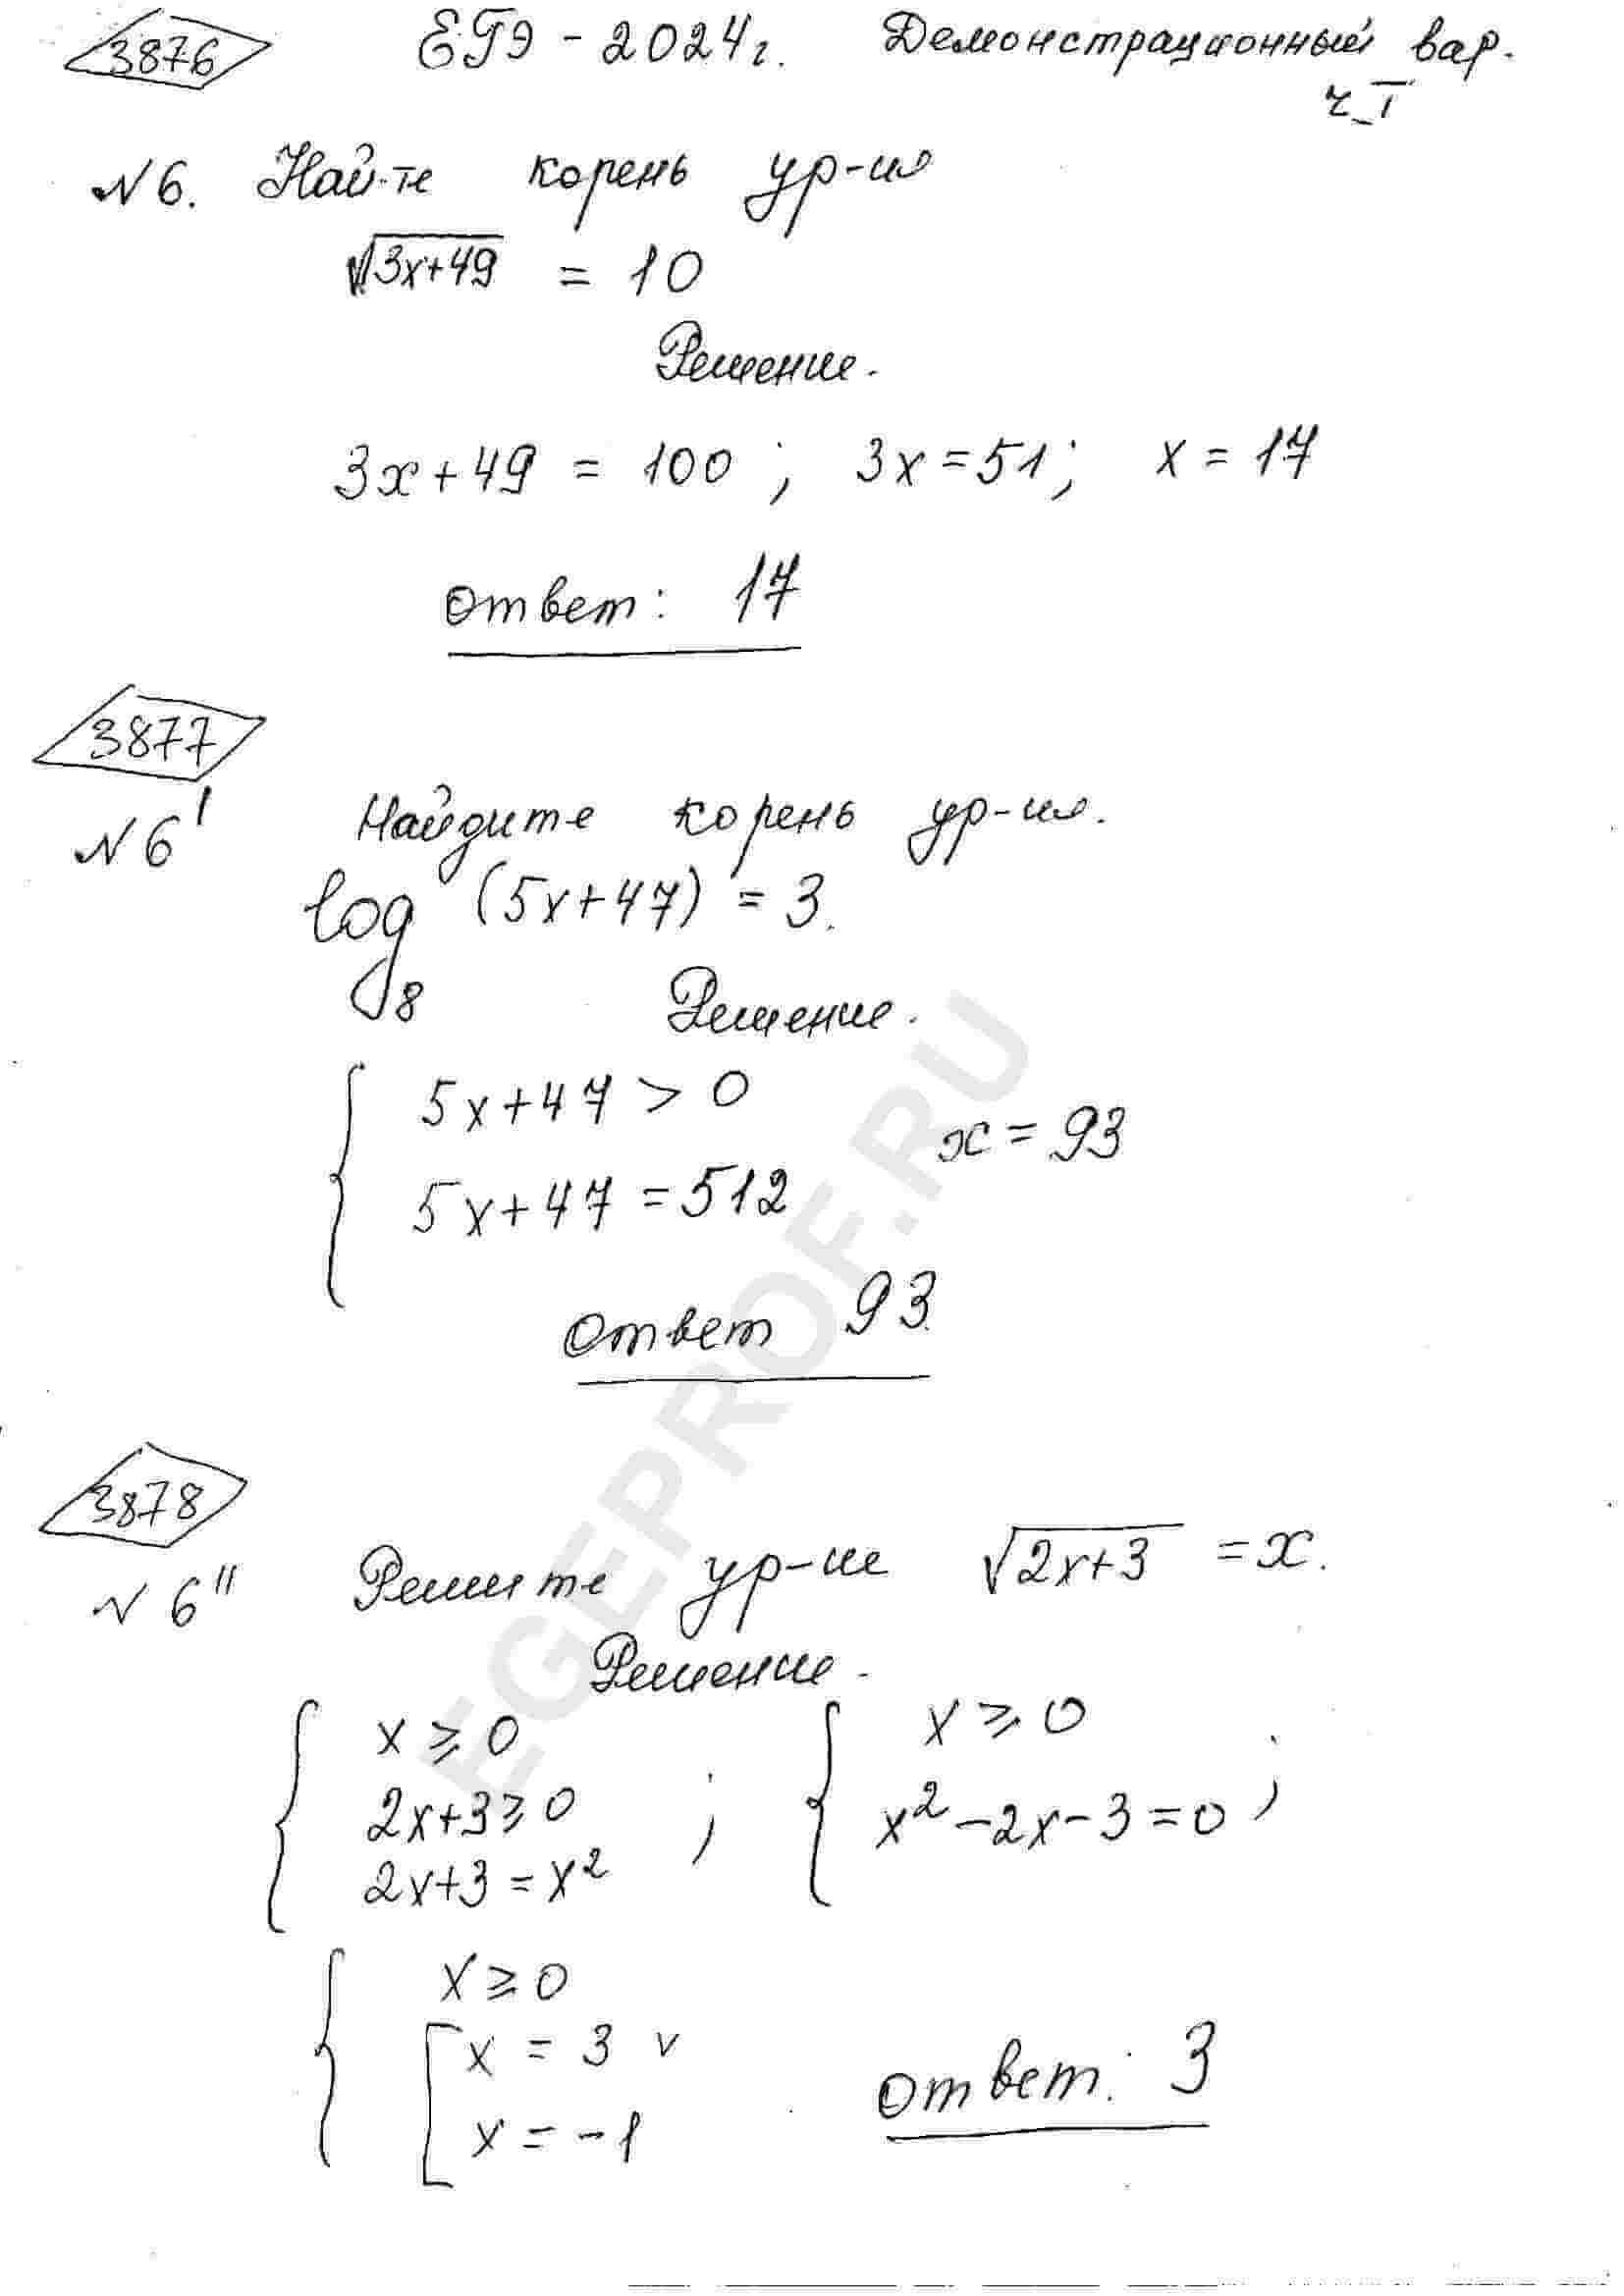 3876 ЕГЭ - 2024г. Демонстрационный вар.
ч. I
№6. Най-те корень ур-ия
√3x+49 = 10
Решение.
3x+49 = 100 ; 3x=51; x = 17
Ответ: 17
3877
№6' Найдите корень ур-ия.
log₈ (5x+47) = 3.
Решение.
5x+47 > 0
x = 93
5x+47 = 512
Ответ 93
3878
№6" Решите ур-ие √2x+3 = x.
Решение.
x ≥ 0 x ≥ 0
2x+3 ≥ 0 ; x² - 2x - 3 = 0 ;
2x+3 = x²
x ≥ 0
x = 3 v
x = -1
Ответ: 3
EGEPROF.RU